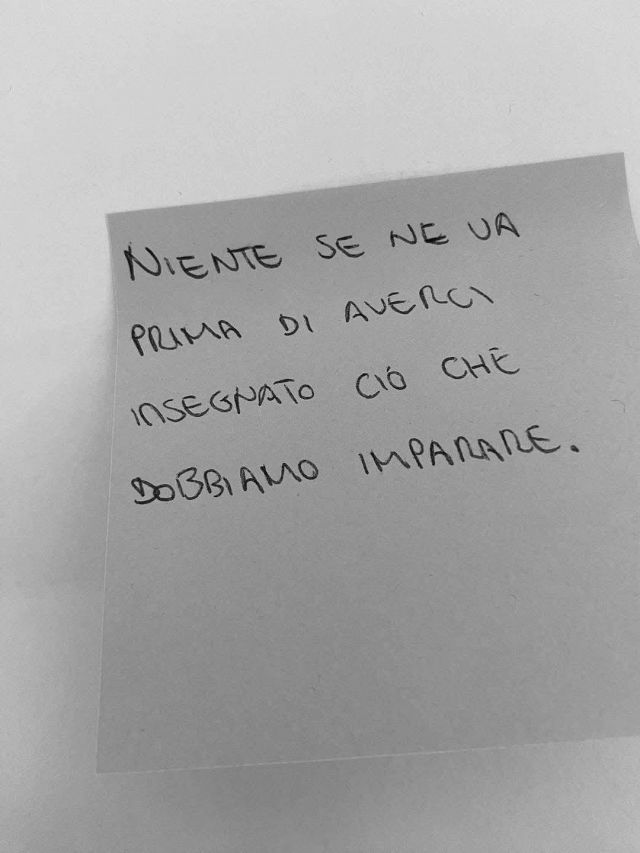 NIENTE SE NE VA
PRIMA DI AVERCI
INSEGNATO CIÒ CHE
DOBBIAMO IMPARARE.